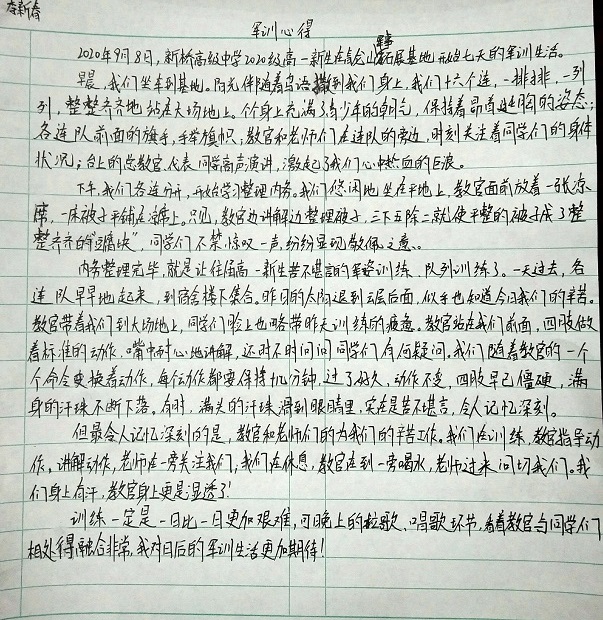 李新春
军训心得
2020年9月8日,新桥高级中学2020级高一新生在含山军事拓展基地开始七天的军训生活。
早晨,我们坐车到基地。阳光伴随着鸟语撒到我们身上,我们十六个连,一排排,一列
列,整整齐齐地站在大场地上。个个身上充满了青少年的朝气,保持着昂首挺胸的姿态;
各连队前面的旗手,手举旗帜,教官和老师们在连队的旁边,时刻关注着同学们的身体
状况;台上的总教官、代表同学高声演讲,激起了我们心中热血的巨浪。
下午,我们各连分开,开始学习整理内务。我们悠闲地坐在平地上,教官面前放着一张凉
席,一床被子平铺在凉席上。只见,教官边讲解边整理被子,三下五除二就使平整的被子成了整
整齐齐的"豆腐块",同学们不禁惊叹一声,纷纷显现敬佩之意。
内务整理完毕,就是让住宿高一新生苦不堪言的军姿训练、队列训练了。一天过去,各
连队早早地起来,到宿舍楼下集合。昨日的太阳迟到云层后面,似乎也知道今日我们的辛苦。
教官带着我们到大场地上,同学们脸上也略带昨天训练的疲惫。教官站在我们前面,四肢做
着标准的动作,嘴中耐心地讲解,还时不时问问同学们有何疑问。我们随着教官的一个
个命令变换着动作,每个动作都要保持十几分钟,过了好久,动作不变,四肢早已僵硬,满
身的汗珠不断下落。有时,满头的汗珠滑到眼睛里,实在是苦不堪言,令人记忆深刻。
但最令人记忆深刻的是,教官和老师们的为我们的辛苦工作。我们在训练,教官指导动
作,讲解动作,老师在一旁关注我们,我们在休息,教官在到一旁喝水,老师过来问切我们。我
们身上有汗,教官身上更是湿透了!
训练一定是一日比一日更加艰难,可晚上的拉歌、唱歌环节,看着教官与同学们
相处得融合非常,我对日后的军训生活更加期待!